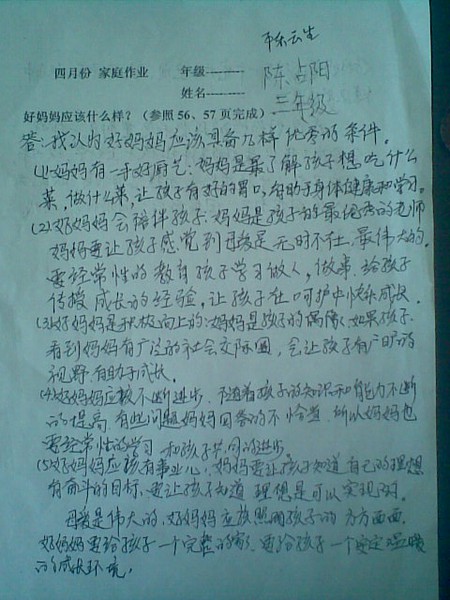 陈云生
四月份 家庭作业 年级--------
陈占阳
姓名--------
三年级
好妈妈应该什么样？（参照56、57页完成）
答：我认为好妈妈应该具备几样优秀的条件。
(1)妈妈有一手好厨艺：妈妈是最了解孩子想吃什么
菜，做什么菜，让孩子有好的胃口，有助于身体健康和学习。
(2)好妈妈会陪伴孩子：妈妈是孩子的最优秀的老师
妈妈要让孩子感觉到母爱是无时不在，最伟大的。
要经常性的教育孩子学习做人，做事，给孩子
传授成长的经验，让孩子在呵护中快乐成长。
(3)好妈妈是积极向上的：妈妈是孩子的偶像，如果孩子
看到妈妈有广泛的社会交际圈，会让孩子有广阔的
视野，有助于成长。
(4)好妈妈应该不断进步，随着孩子的知识和能力不断
的提高，有些问题妈妈回答的不恰当，所以妈妈也
要经常性的学习，和孩子共同的进步。
(5)好妈妈应该有事业心，妈妈要让孩子知道自己的理想
有奋斗的目标，要让孩子知道理想是可以实现的。
母爱是伟大的，好妈妈应该照顾孩子的方方面面
好妈妈要给孩子一个完整的家，要给孩子一个安定温暖
的成长环境。